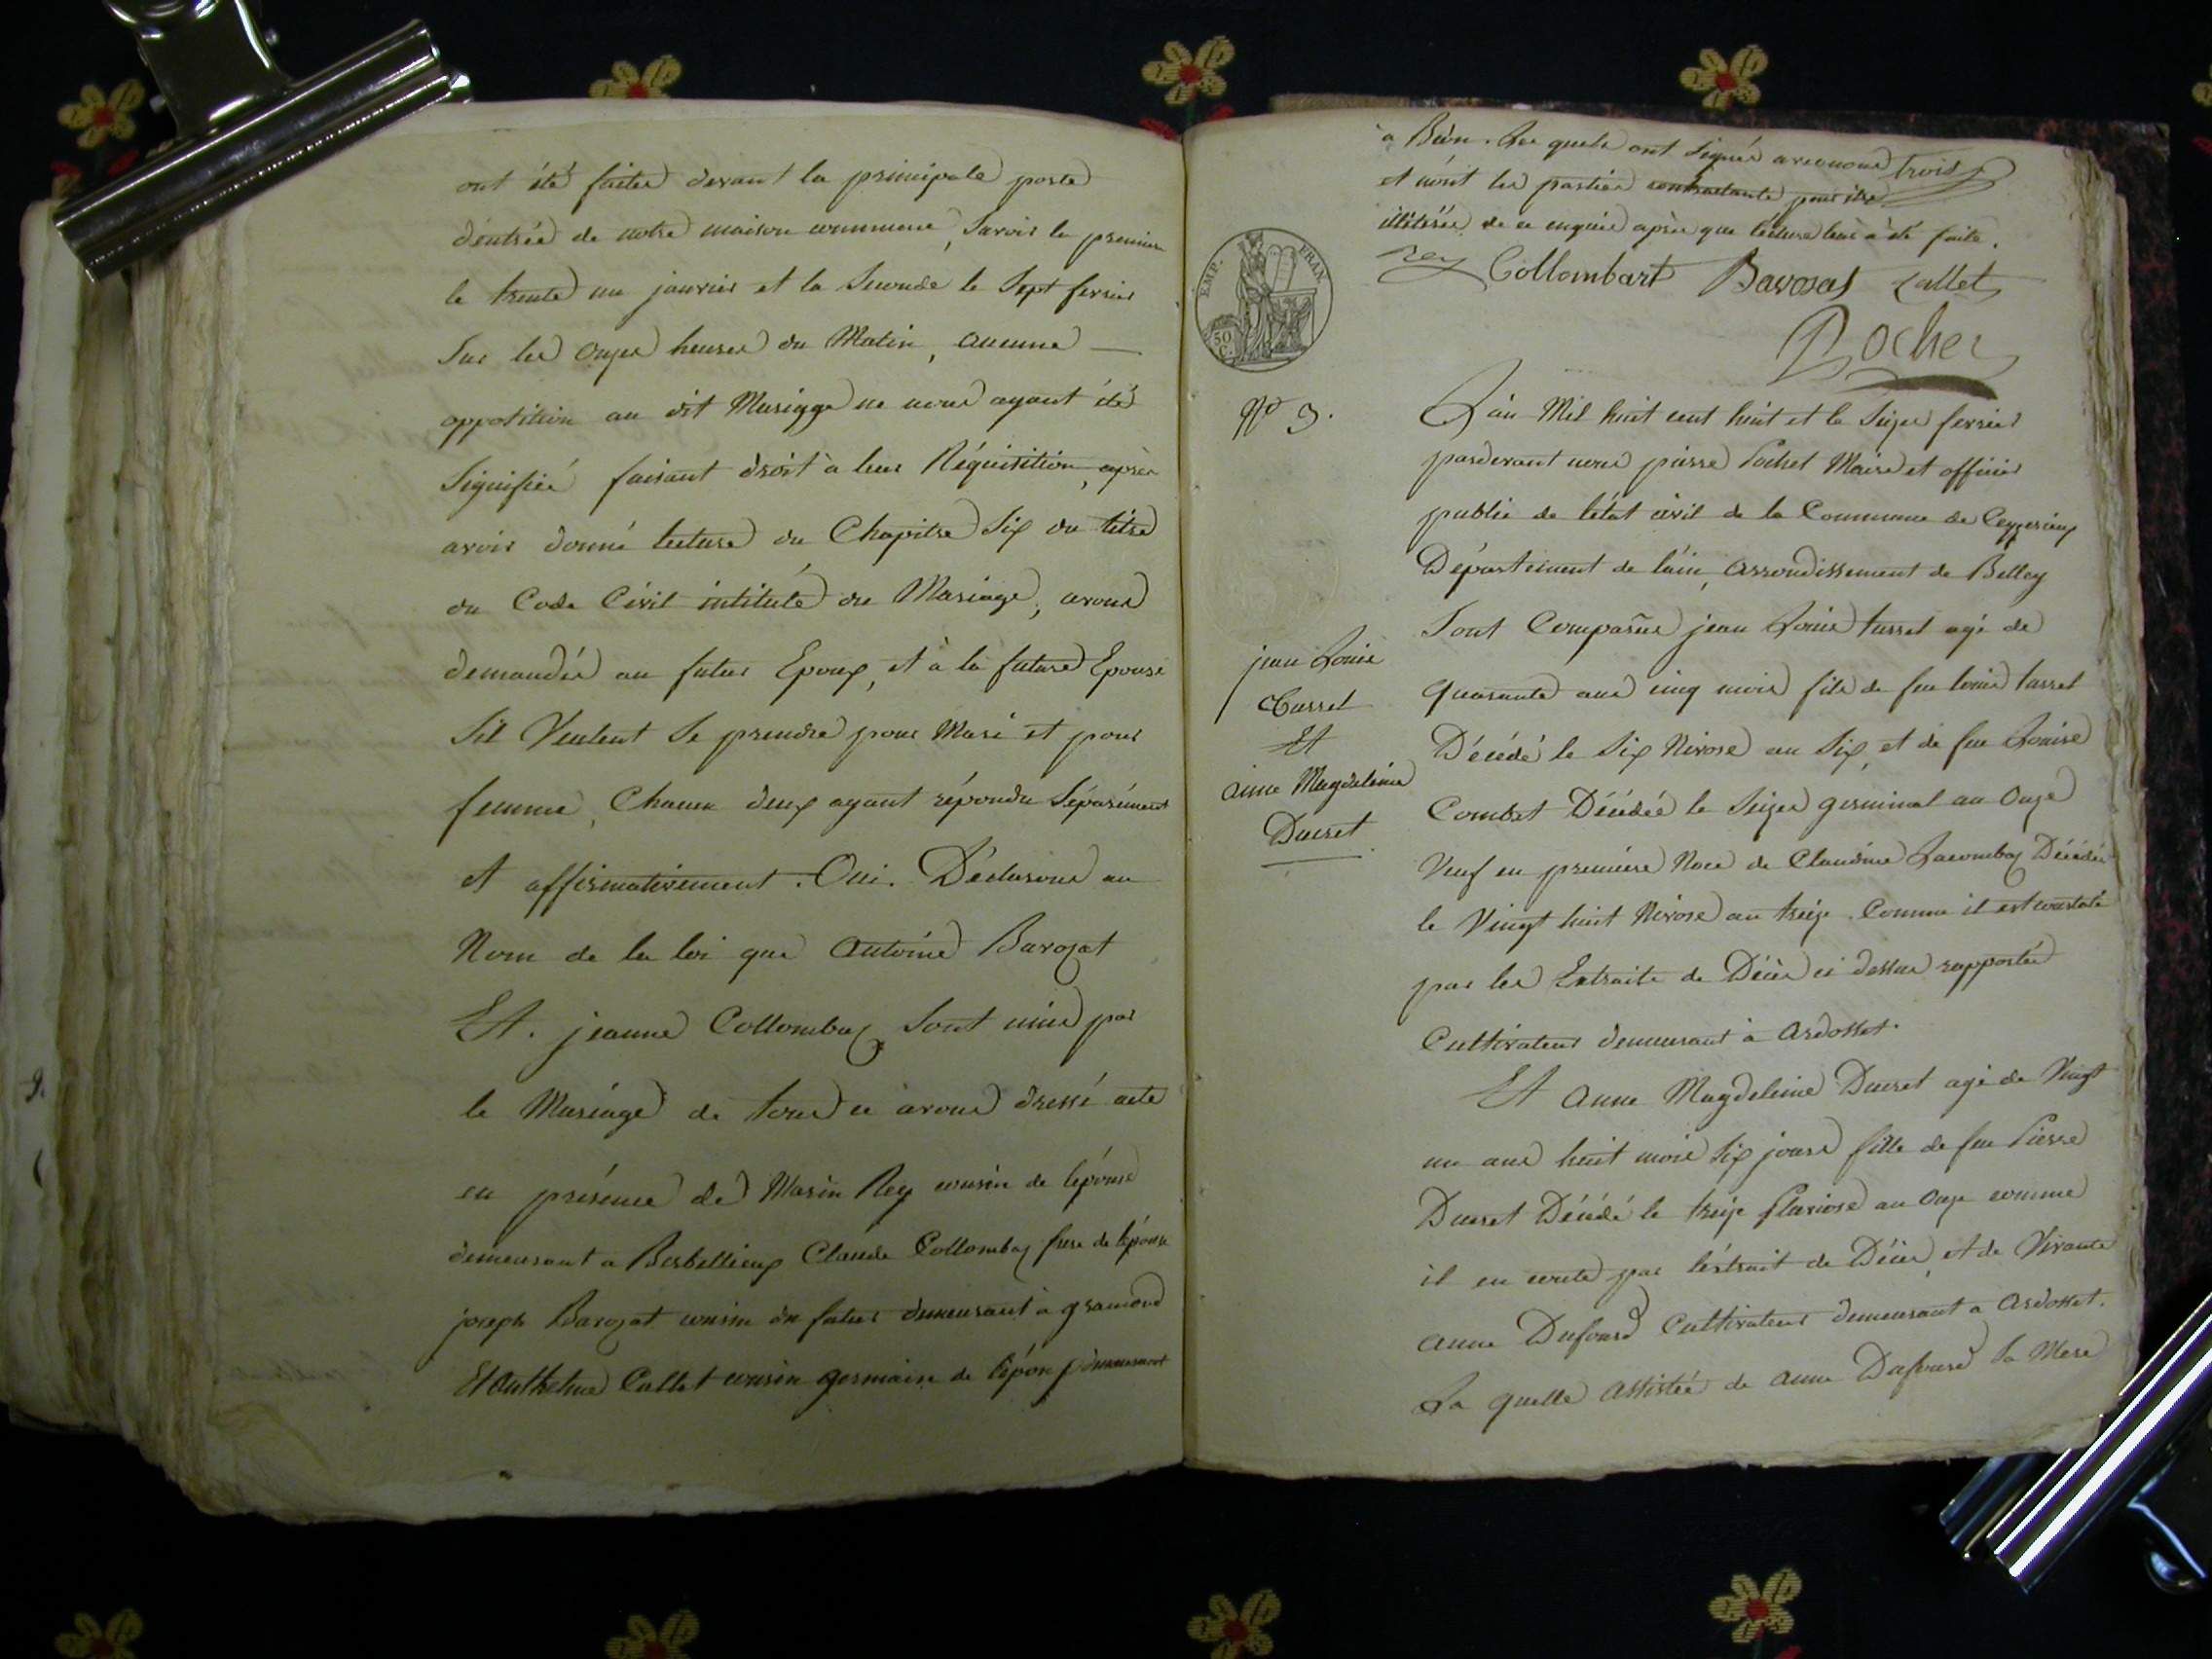 ont été faites devant la principale porte
d'entrée de notre maison commune, Savoir la premiere
le trente un janvier et la Seconde le Sept fevrier
Sur les onzes heures du Matin, aucune
opposition au dit Mariage ne nous ayant été
Signifiée faisant droit à leur Réquisition, après
avoir donné lecture du Chapitre Six du titre
du Code Civil intitulé du Mariage, avons
demandés au futur Epoux, et à la future Epouse
Sil Veulent Se prendre pour Mari et pour
femme, Chacun deux ayant répondu Séparément
et affirmativement. Oui. Déclarons au
Nom de la loi que Antoine Barozat
Et. jeanne Collombaz Sont unis par
le Mariage de tous ce avons dressé acte
en présence de Marin Rey cousin de lépouse
demeurant a Berbellieux Claude Collombaz frere de lépouse
joseph Barozat cousin du futur demeurant à gramond
Et Anthelme Callet cousin germain de lépoux demeurant
à Béon. Les quels ont Signés avec nous trois
et nont les parties contractante pour être
illitérée de ce enquis après que lecture leur à été faite.
Rey Collombart Bavosat Callet
Pochet
EMP. FRAN.
50 C.
N° 3.
L'an Mil huit cent huit et le Seize fevrier
pardevant nous pierre Pochet Maire et officier
public de létat civil de la Commune de Ceyzerieux
Département de lain, arrondissement de Belley
Sont Comparus jean Louis tarret agé de
quarante ans cinq mois fils de feu louis tarret
Décédé le Six Nivose an Six, et de feu Louise
Combet Décédée le Seizes germinal an Onze
Veuf en première Noce de Claudine Lacombaz Décédée
le Vingt huit Nivose an treize. Comme il est constaté
par les Extraits de Décès ci dessus rapportés
Cultivateur demeurant à ardosset.
Et anne Magdeleine Ducret agé de Vingt
un ans huit mois Six jours fille de feu Pierre
Ducret Décédé le treize pluviose an Onze comme
il en conste par l'éxtrait de Décès, et de Vivante
anne Dufourd Cultivateur demeurant a ardosset.
La quelle assistée de anne Dufourd Sa Mere
jean Louis
Tarret
Et
anne Magdeleine
Ducret